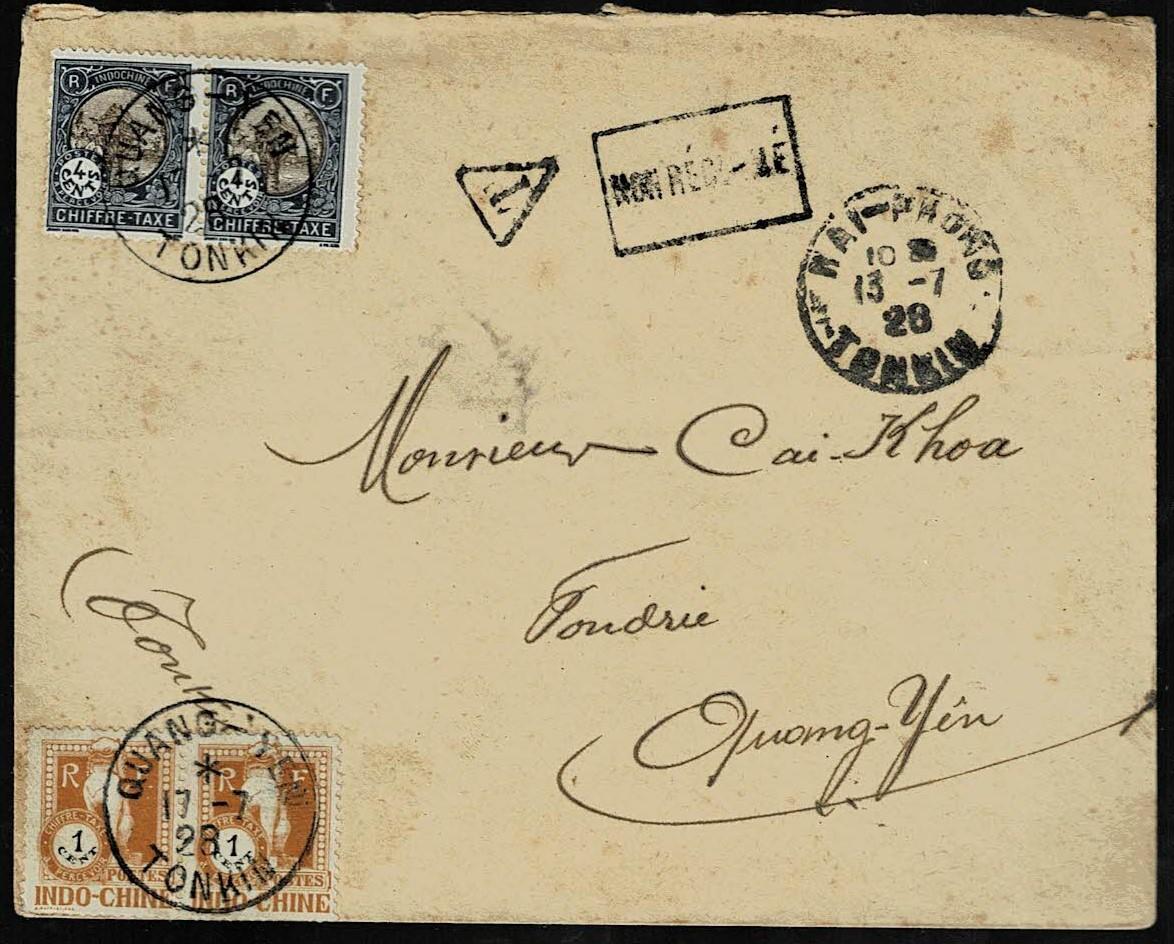 R INDOCHINE F
R INDOCHINE F
POSTES
4 CENTS
4 CENTS
CHIFFRE-TAXE
CHIFFRE-TAXE
QUANG-YEN
28
TONKIN
T
NON RÉCL-MÉ
HAI-PHONG
10
13 -7
28
TONKIN
Monsieur Cai-Khoa
Fondrie
Quang-Yên
(Tonkin
QUANG-YEN
17 -7
28
TONKIN
R
R F
CHIFFRE-TAXE
1 CENT
A PERCEVOIR
CHIFFRE-TAXE
1 CENT
POSTES
POSTES
INDO-CHINE
INDO-CHINE